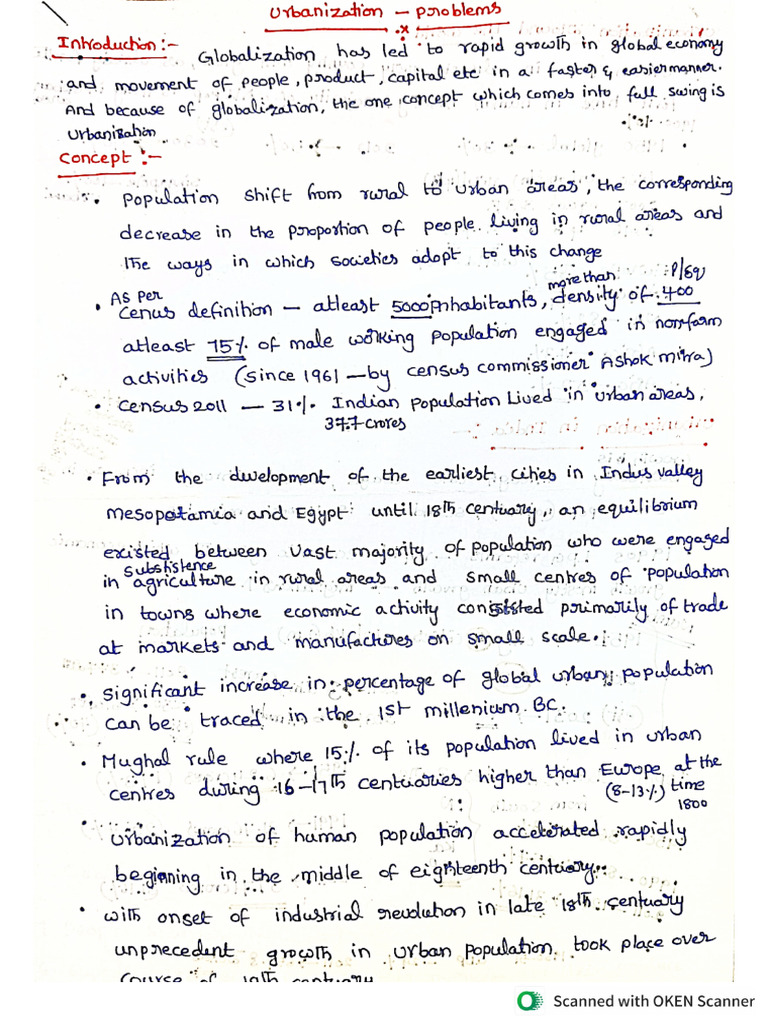 Urbanization – problems
Introduction :-
Globalization has led to rapid growth in global economy
and movement of people, product, capital etc in a faster & easier manner.
And because of globalization, the one concept which comes into full swing is
Urbanisation
Concept :-
• population shift from rural to urban areas, the corresponding
decrease in the proportion of people living in rural areas and
the ways in which societies adopt to this change
• As per
Cenus definition – atleast 5000 inhabitants, more than density of 400 P/sq
atleast 75% of male working population engaged in nonfarm
activities (since 1961 – by census commissioner Ashok mitra)
• census 2011 – 31% Indian population Lived in urban areas,
377 crores
• From the dwelopment of the earliest cities in Indus valley
mesopotamia and Egypt until 18th centuary, an equilibrium
existed between vast majority of population who were engaged
in substistence agriculture in rural areas and small centres of population
in towns where economic activity consisted primarily of trade
at markets and manufactures on small scale.
• significant increase in percentage of global urban population
can be traced in the 1st millenium BC.
• Mughal rule where 15% of its population lived in urban
centres during 16–17th centuaries higher than Europe at the
(8-13%) time
1800
• urbanization of human population accelerated rapidly
beginning in the middle of eighteenth centuary.
• with onset of industrial revolution in late 18th centuary
unprecedent growth in urban population took place over
course of 19th centuary
Scanned with OKEN Scanner